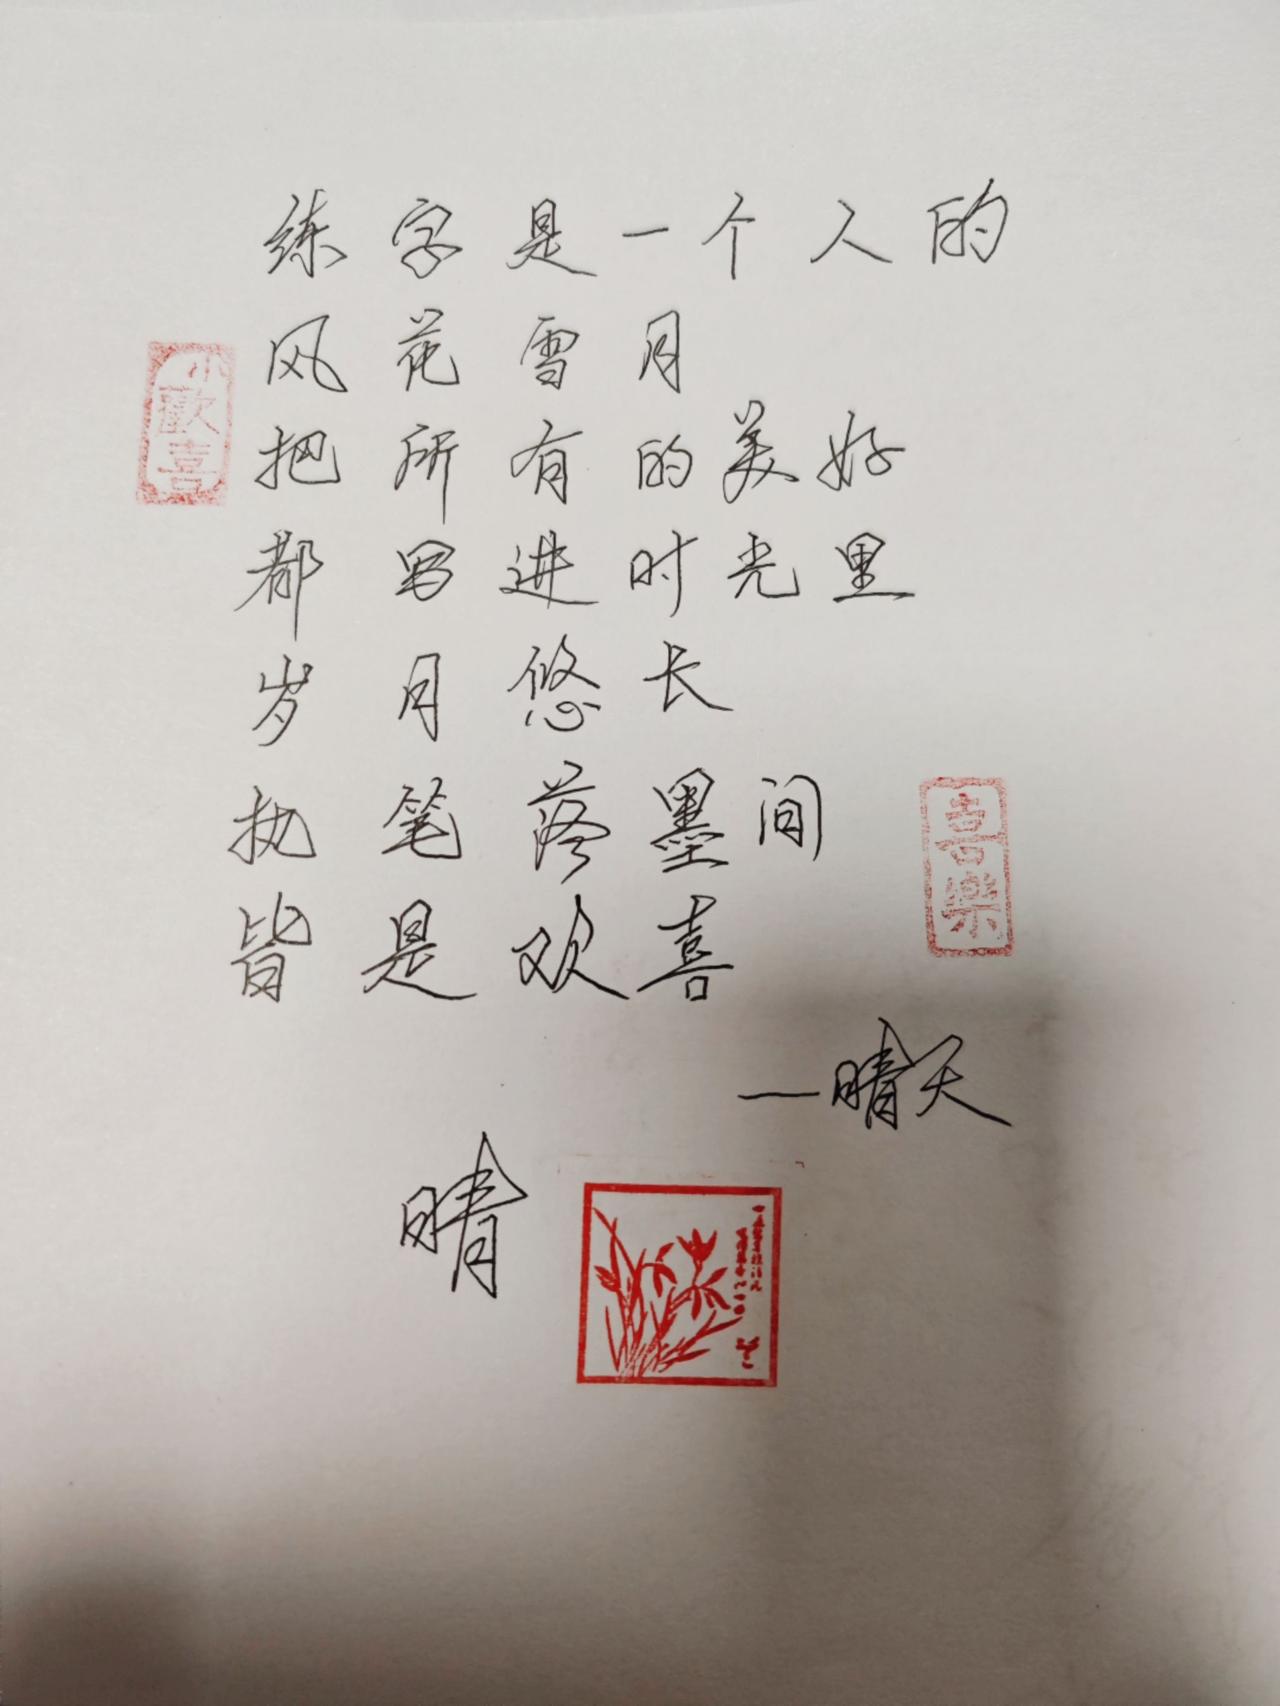 练字是一个人的
风花雪月
小歡喜
把所有的美好
都写进时光里
岁月悠长
执笔落墨间
喜樂
皆是欢喜
一晴天
晴